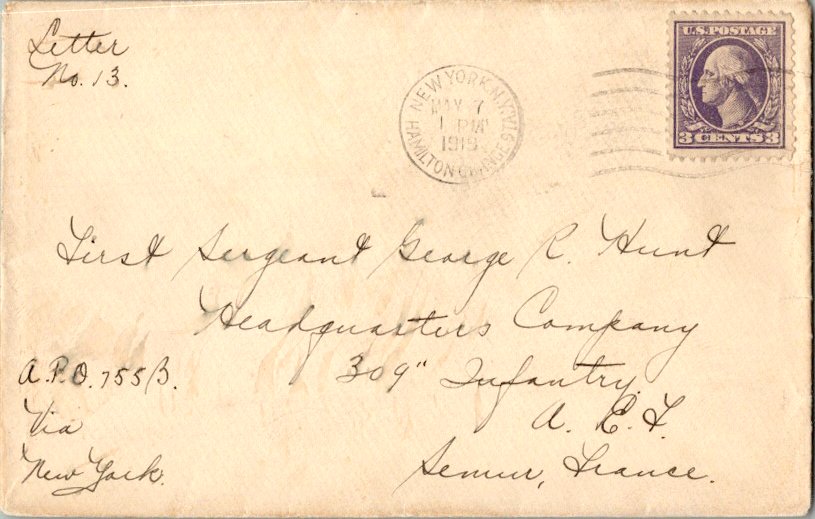 Letter
No. 13.
NEW YORK, N.Y. STA. G
MAY 7
1 PM
1919
HAMILTON GRANGE
U.S. POSTAGE
3 CENTS 3
First Sergeant George R. Hunt
Headquarters Company
309" Infantry.
A. E. F.
Semur, France.
A.P.O. 755 B.
Via
New York.